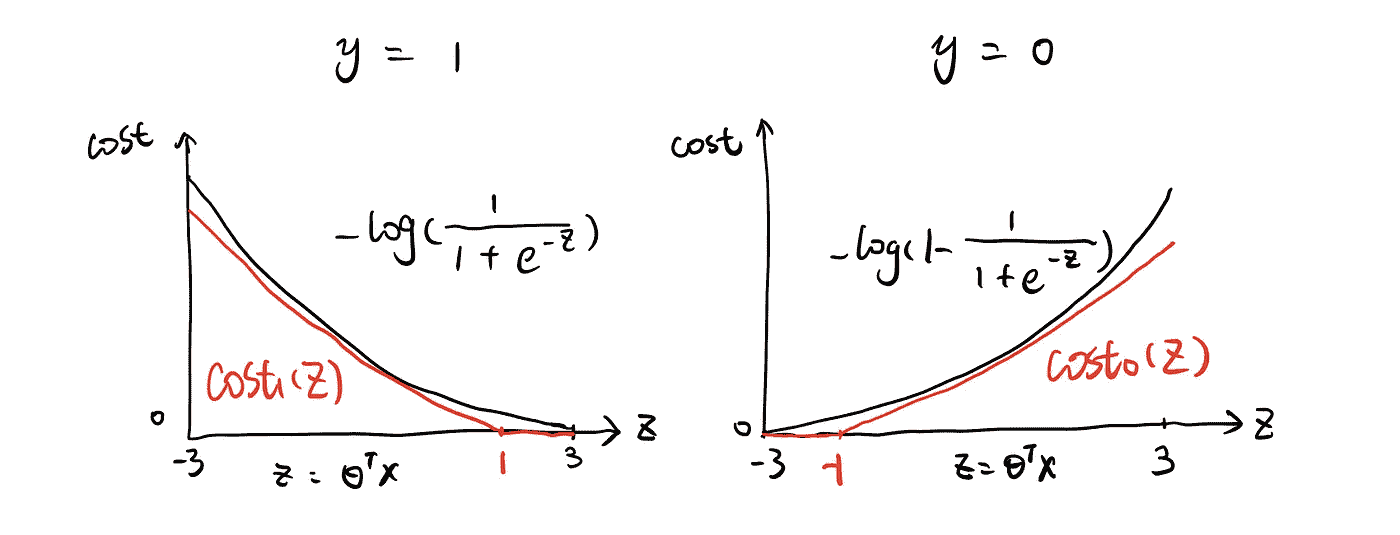 y = 1
cost
-log(1/(1+e^-z))
cost₁(z)
0
z
-3
1
3
z = θᵀx
y = 0
cost
-log(1-1/(1+e^-z))
cost₀(z)
0
z
-3
-1
z=θᵀx
3